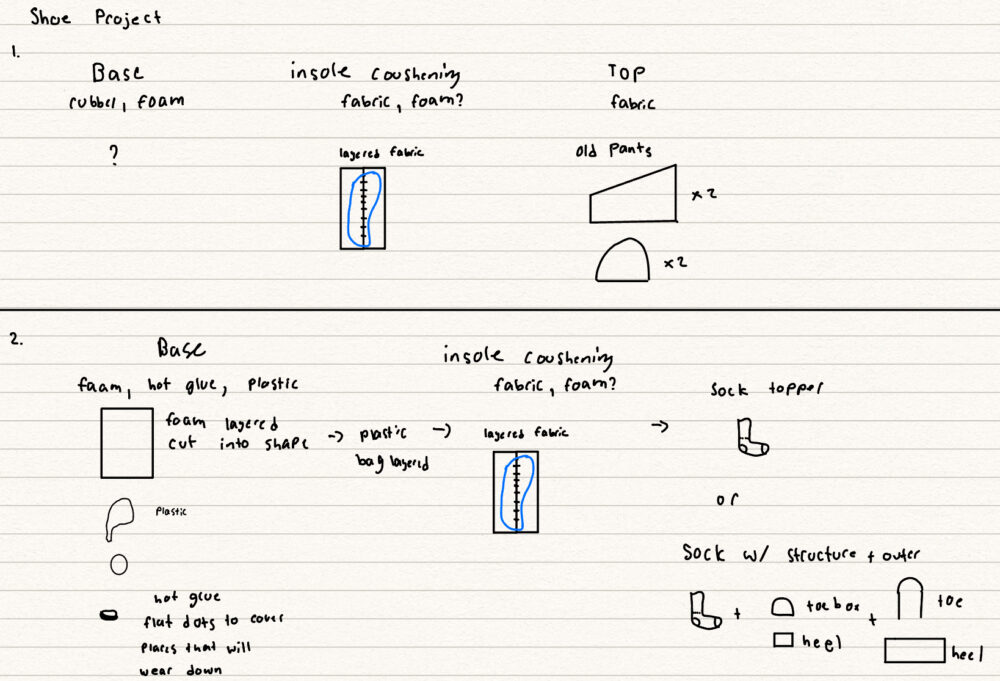 Shoe Project
1.
Base
rubber, foam
?
insole coushening
fabric, foam?
layered fabric
Top
fabric
old pants
x2
x2
2.
Base
foam, hot glue, plastic
foam layered
cut into shape
→ plastic
bag layered
→
plastic
hot glue
flat dots to cover
places that will
wear down
insole coushening
fabric, foam?
layered fabric
→
sock topper
or
Sock w/ structure + outer
+
toebox
heel
+
toe
heel